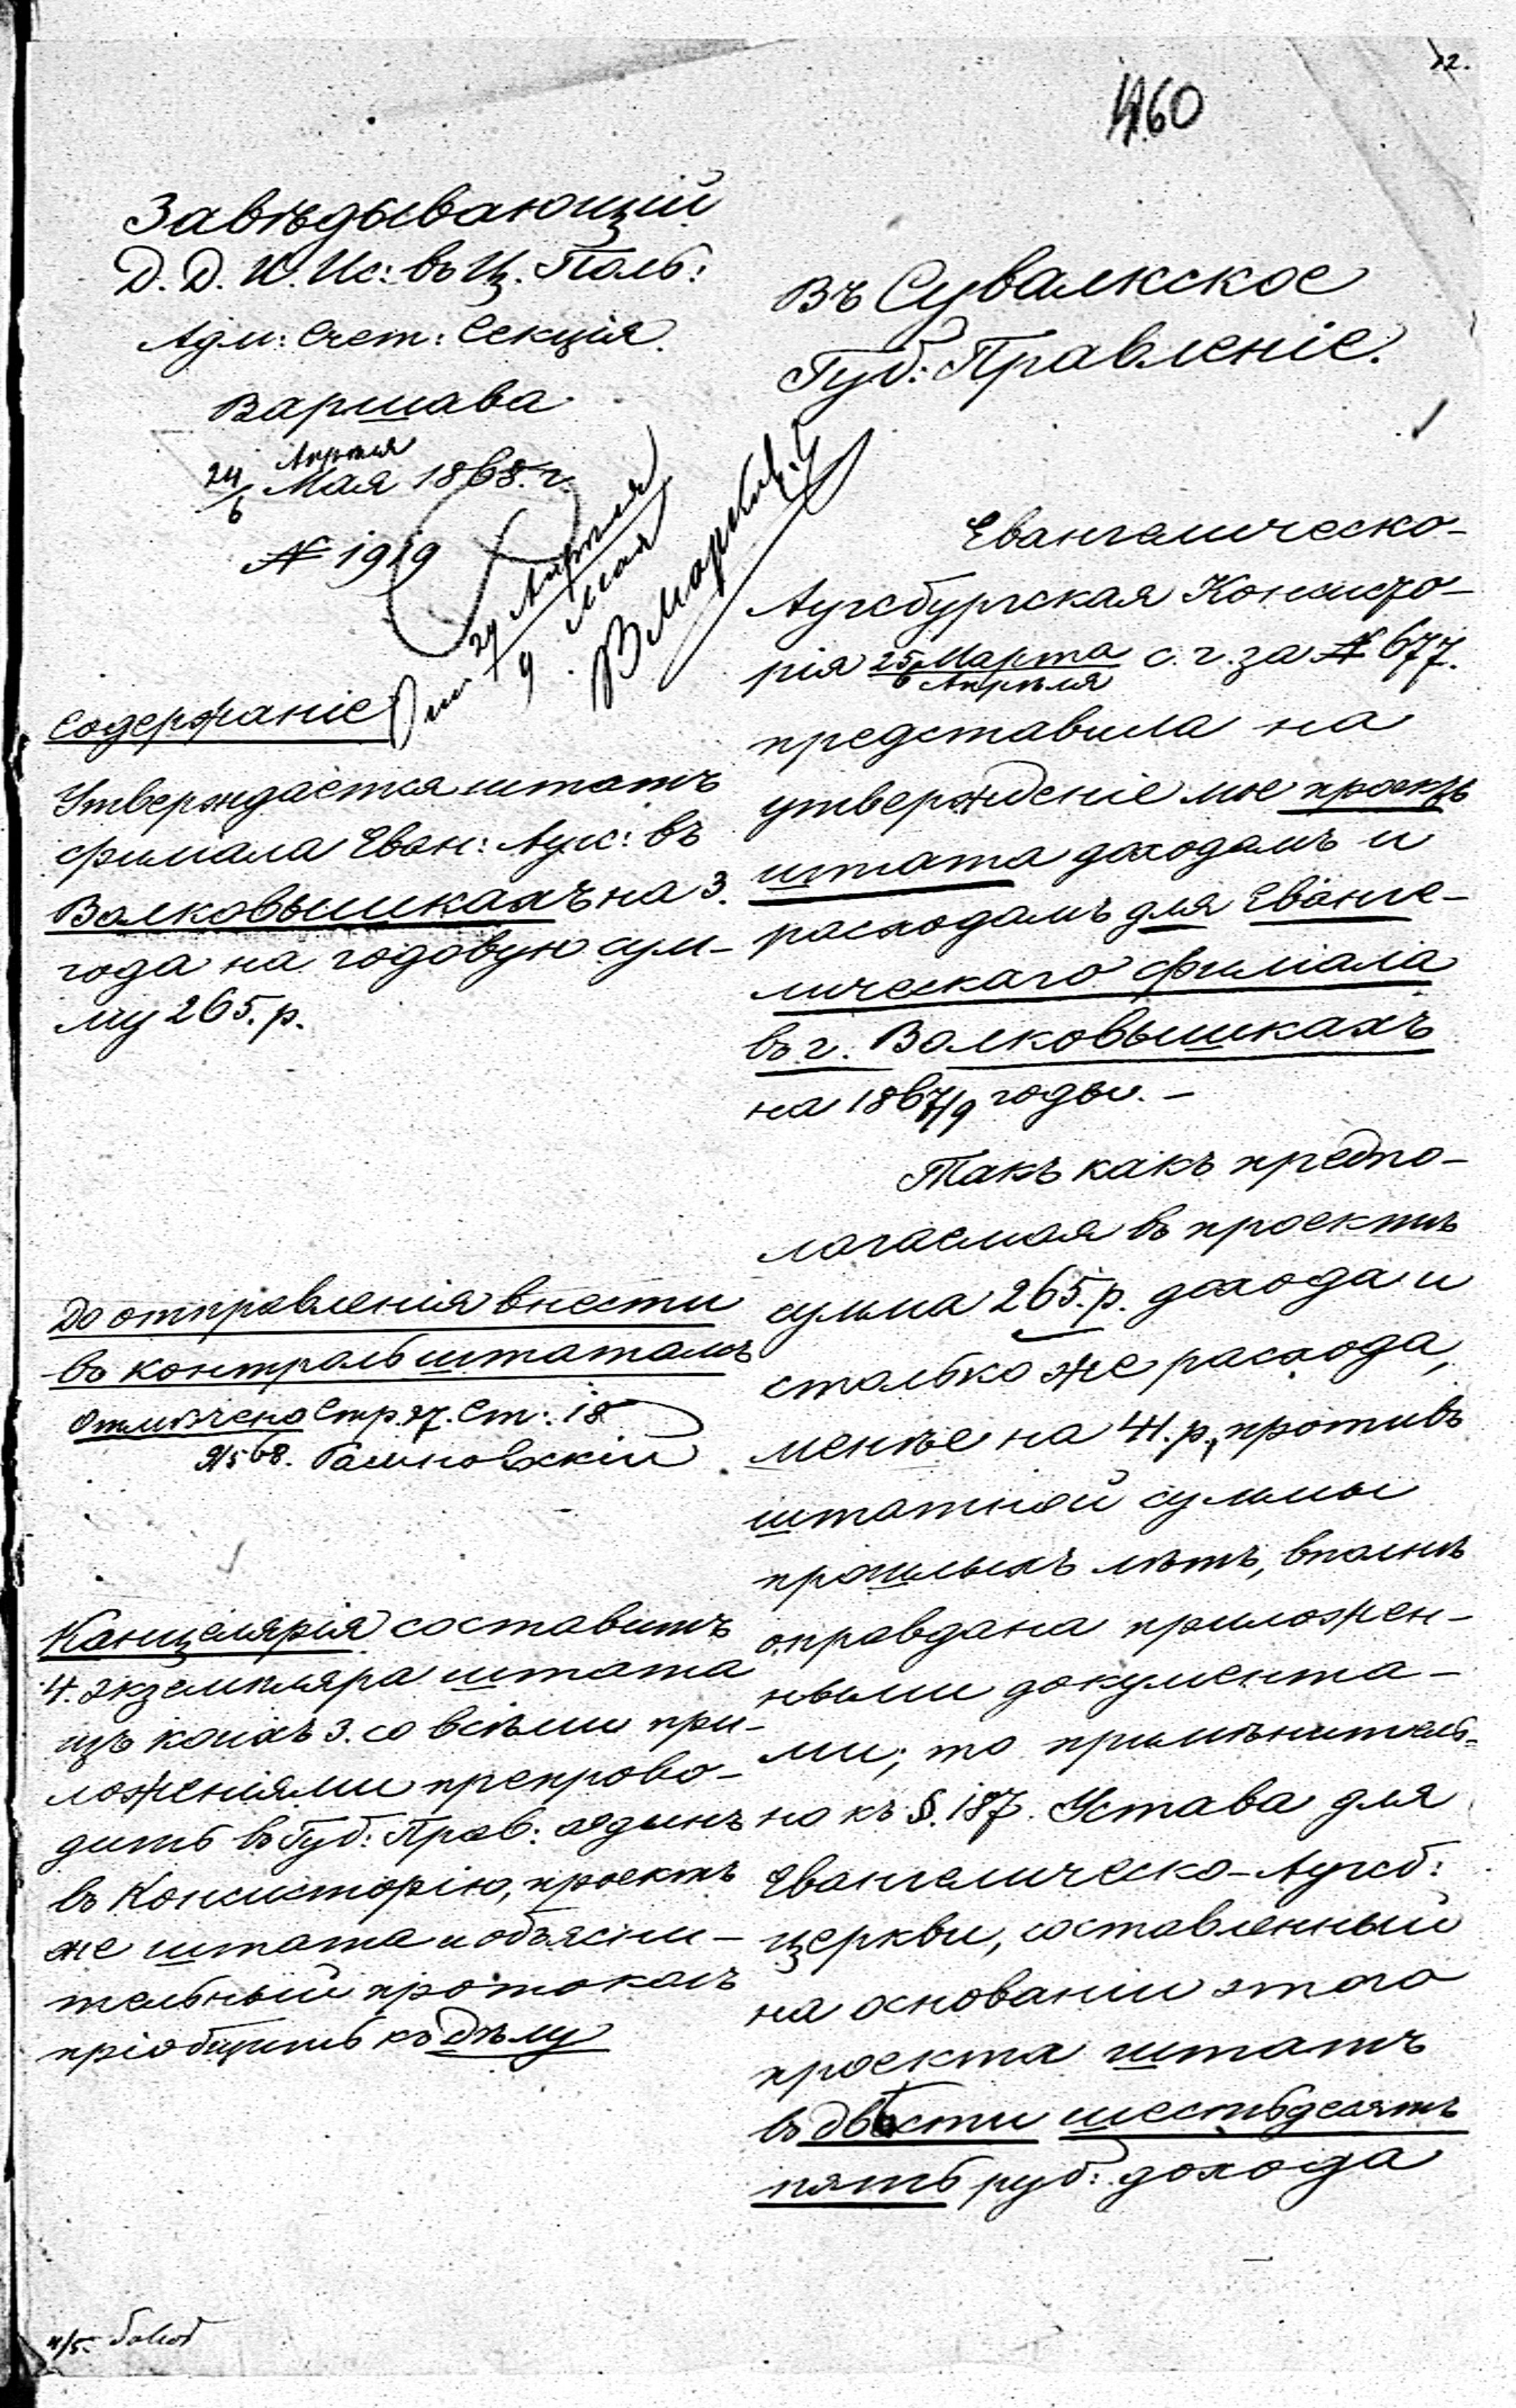 22.
1960
Завѣдывающій
Д. Д. И. Ис: въ Ц. Поль:
Адм: Счет: Секція.
Варшава
24/6 Апрѣля Мая 1868. г.
№ 1919
29 Апрѣля
9 Мая
Содержаніе
Утверждается штатъ
филіала Еван: Аугс: въ
Волковышкахъ на 3.
года на годовую сум-
му 265. р.
До отправленія внести
въ контроль штатамъ
Отмѣчено Стр. 27. Ст: 18
9/5 68.
Канцелярія составитъ
4. экземпляра штата
изъ коихъ 3. со всѣми при-
ложеніями препрово-
дить въ Губ: Прав: одинъ
въ Консисторію, проектъ
же штата и объясни-
тельный протоколъ
пріобщить къ дѣлу
4/5.
Въ Сувалкское
Губ: Правленіе.
Евангелическо-
Аугсбургская Консисто-
рія 25 Марта/6 Апрѣля с. г. за № 677.
представила на
утвержденіе мое проектъ
штата доходамъ и
расходамъ для Еванге-
лическаго филіала
въ г. Волковышкахъ
на 1867/9 годы. -
Такъ какъ предпо-
лагаемая въ проектѣ
сумма 265. р. дохода и
столько же расхода,
менѣе на 41. р. противъ
штатной суммы
прошлыхъ лѣтъ, вполнѣ
оправдана приложен-
ными документа-
ми; то примѣнитель-
но къ §. 187. Устава для
Евангелическо-Аугсб:
церкви, составленный
на основаніи этого
проекта штатъ
въ двѣсти шестьдесятъ
пять руб: дохода